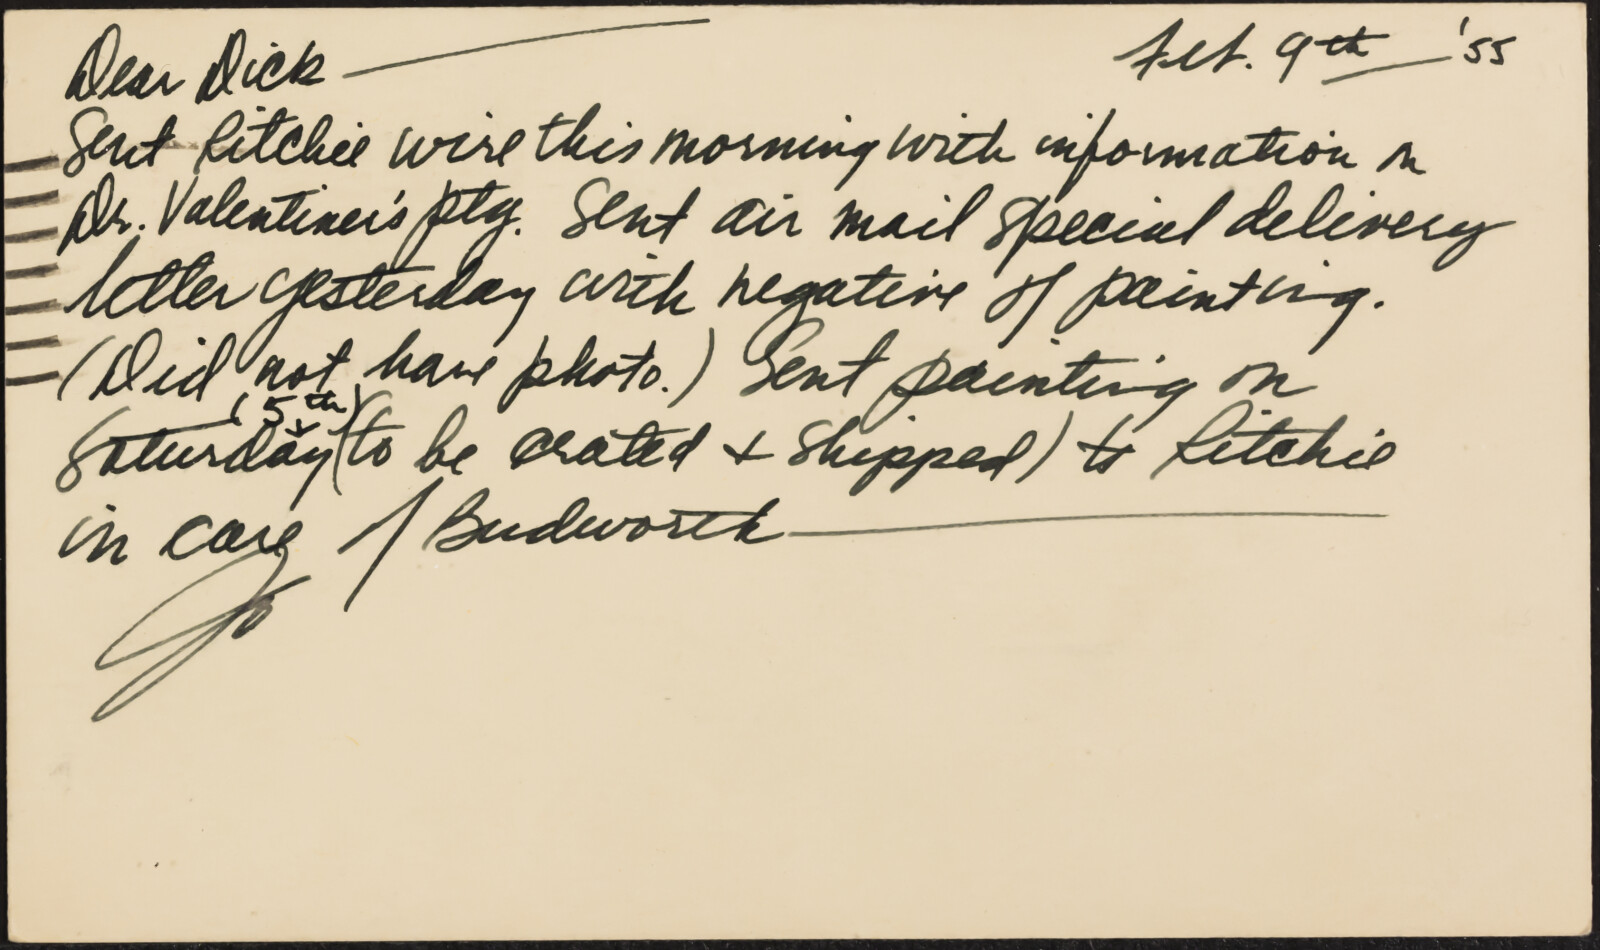 Dear Dick — Feb. 9th — '55
Sent Ritchie wire this morning with information on
Dr. Valentiner's ptg. Sent air mail special delivery
letter yesterday with negative of painting.
(Did not have photo.) Sent painting on
Saturday (5th) (to be crated + shipped) to Ritchie
in care of Budworth —
Jo